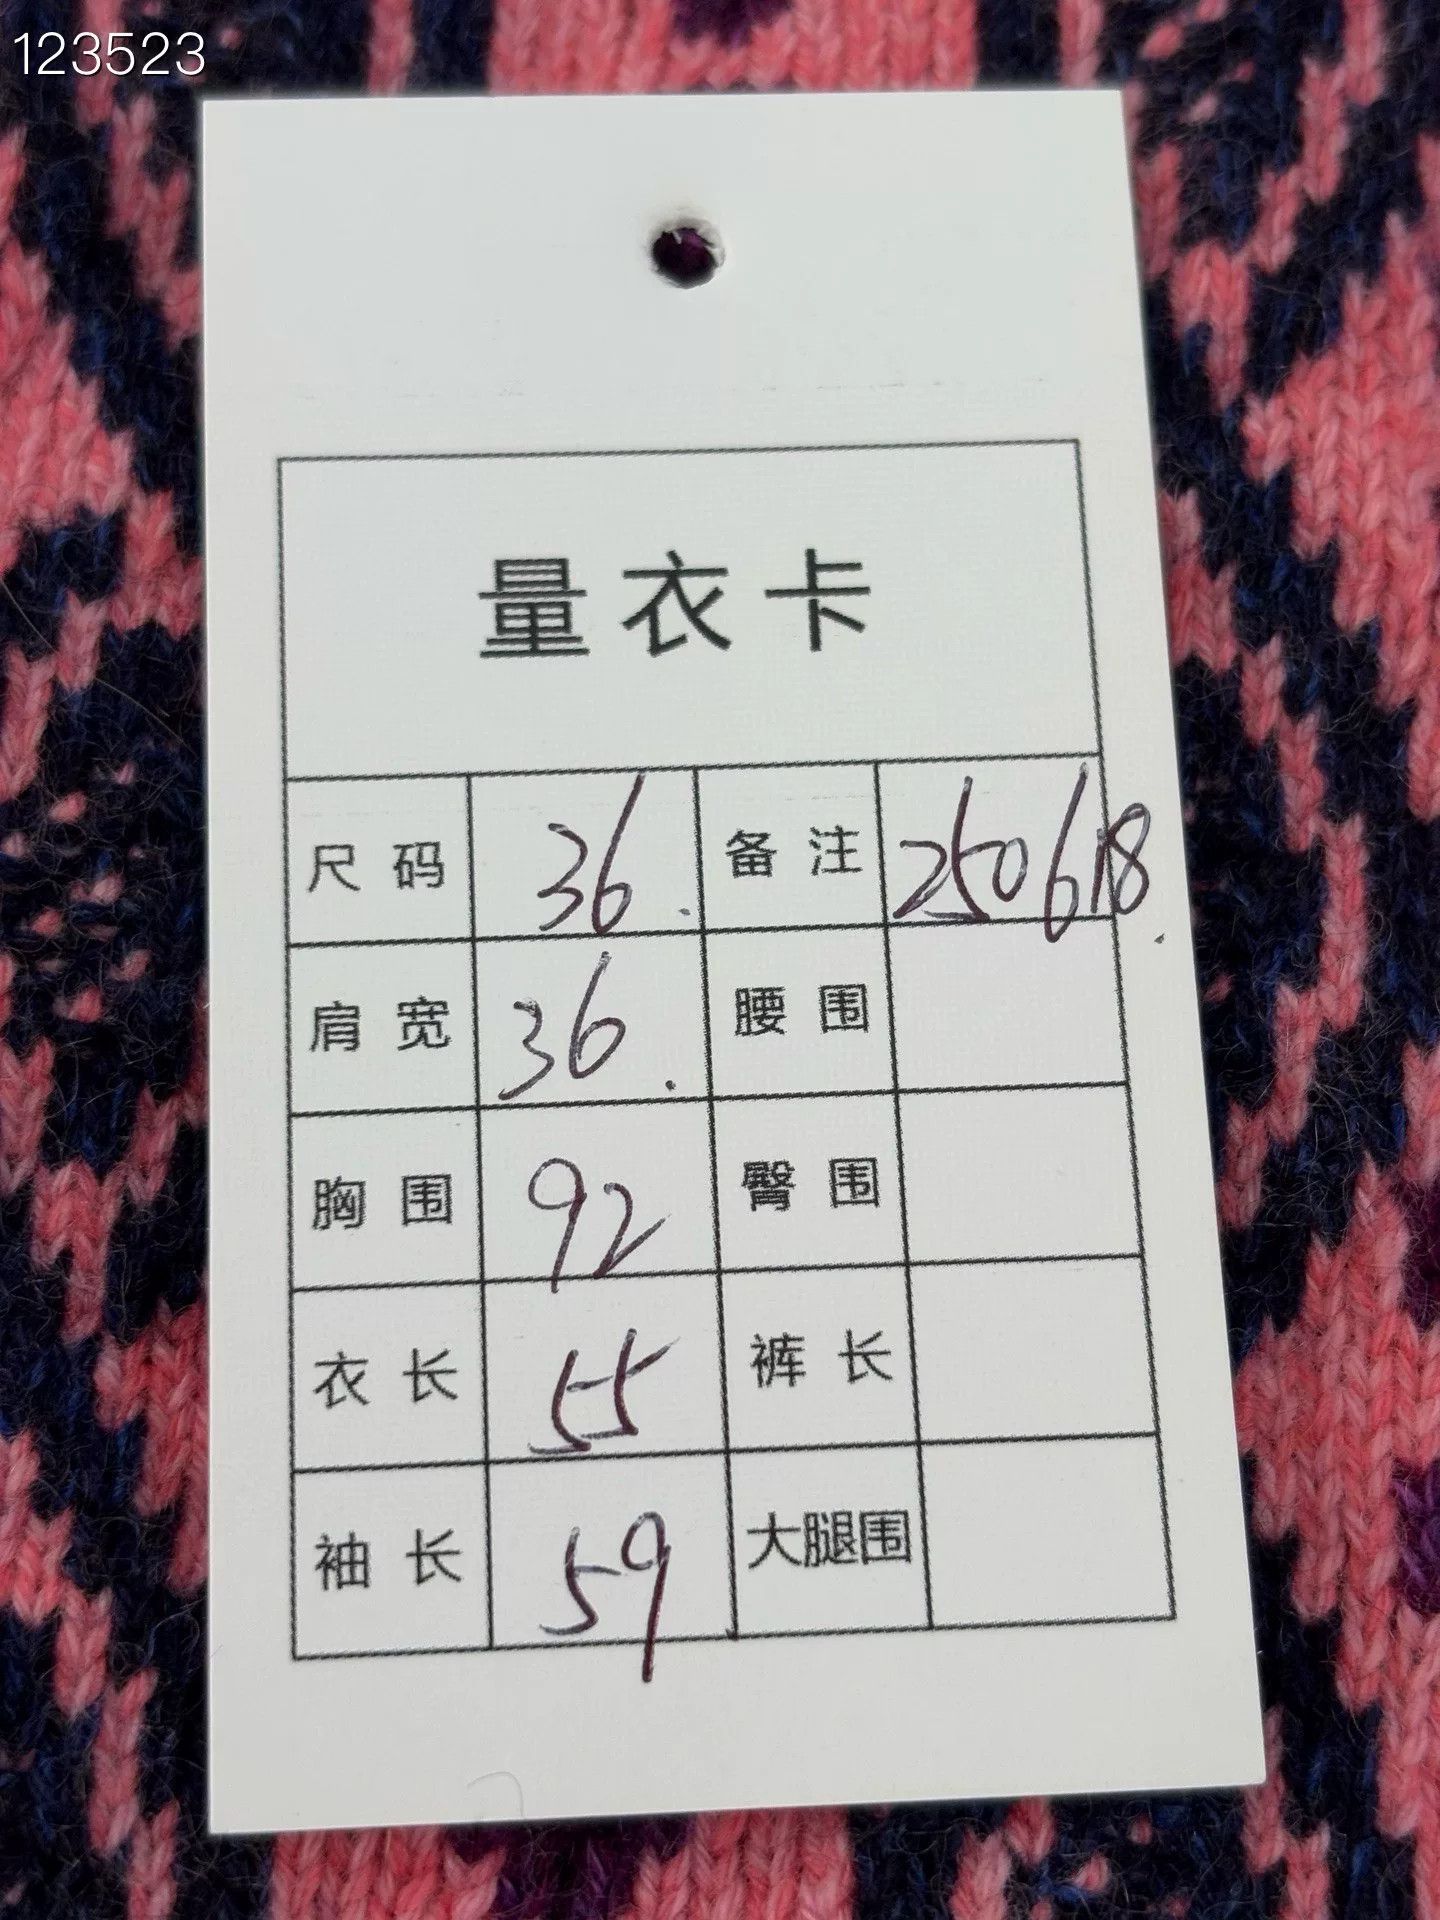 123523
量衣卡
尺码 36 备注 250618
肩宽 36 腰围
胸围 92 臀围
衣长 55 裤长
袖长 59 大腿围